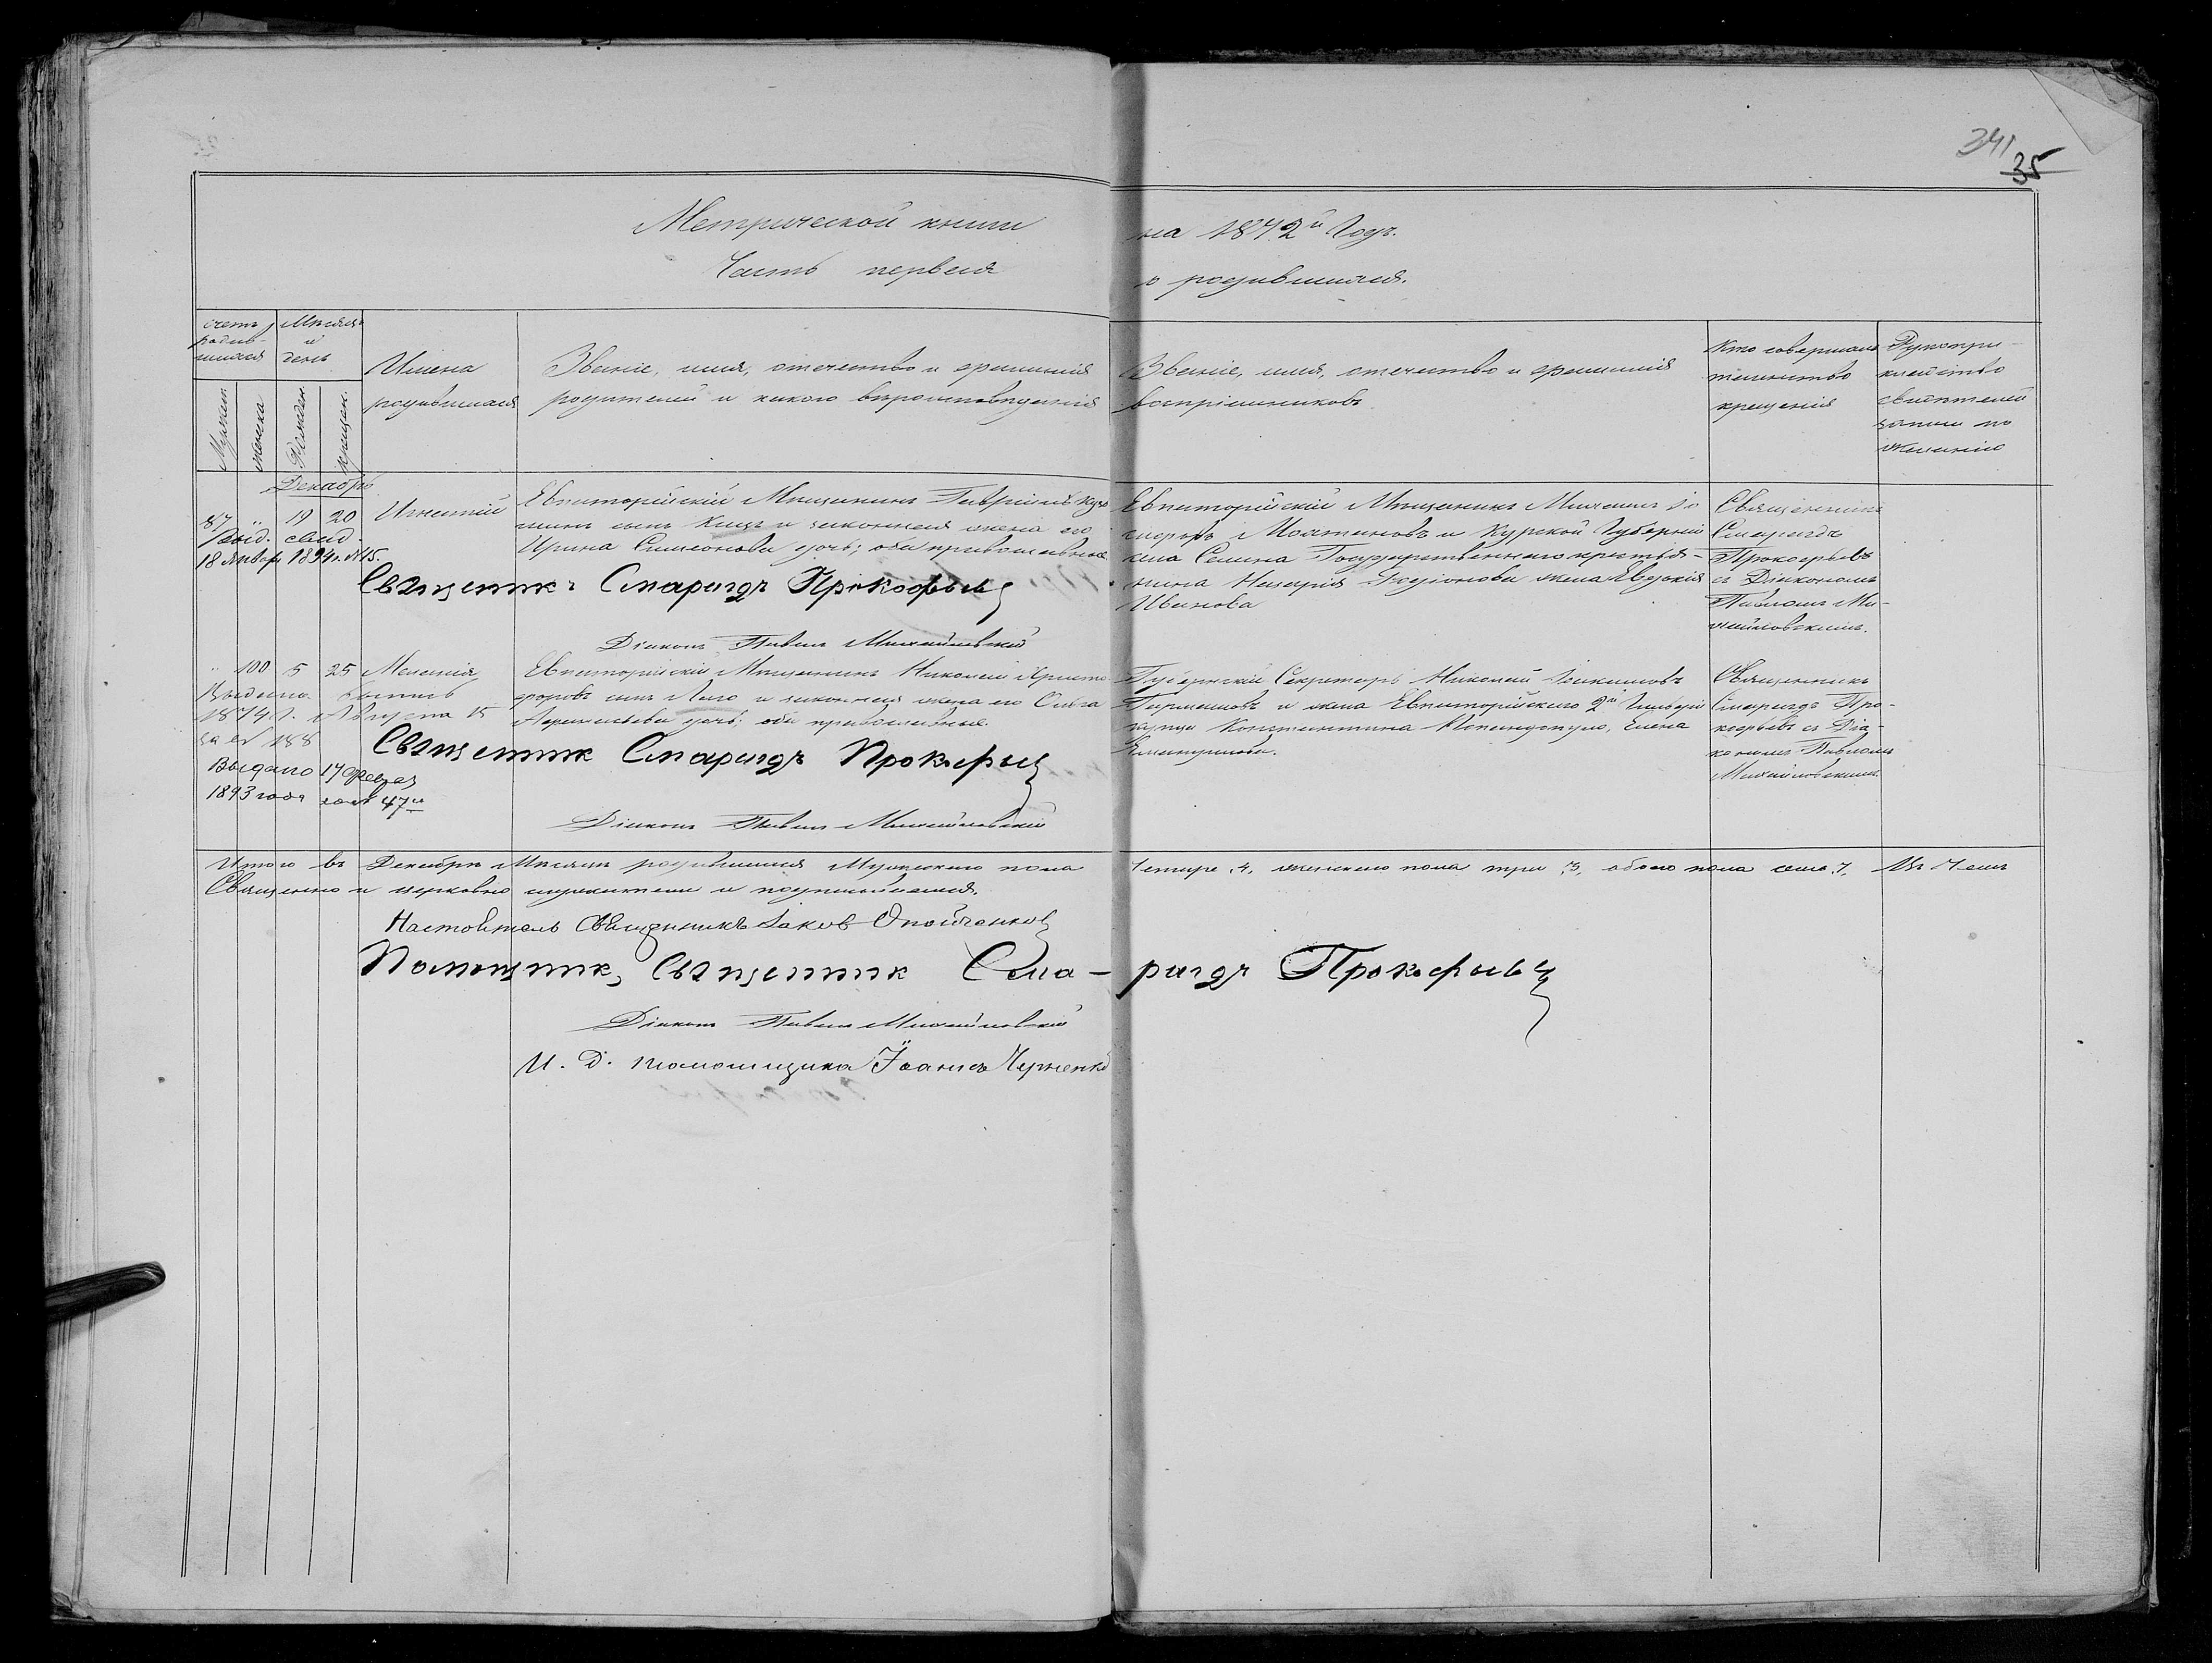 341
35
Метрической книги на 1872й Годъ.
Часть первая о родившихся.
счетъ родив-
шихся
Мѣсяцъ
и
день
Мужеск.
женска
Рожден.
Крещен.
Имена
родившихся
Званіе, имя, отчество и фамилія
родителей и какого вѣроисповѣданія
Званіе, имя, отчество и фамилія
воспріемниковъ
Кто совершалъ
таинство
крещенія
Рукопри-
кладство
свидѣтелей
записи по
желанію
Декабрь
87 " 19 20
Выд. свид.
18 Января 1894 г. №15.
Игнатій
Евпаторійскій Мѣщанинъ Гавріилъ Кузь
минъ сынъ и законная жена его
Ирина Симеонова дочь; оба православные
Евпаторійскій Мѣщанинъ Михаилъ
и Курской Губерніи
села Государственнаго крестья-
нина Назарія жена Евдокія
Иванова
Священникъ
Смарагдъ
Прокофьевъ
съ Діакономъ
Павломъ Ми-
хайловскимъ.
Священникъ Смарагдъ Прокофьевъ
Діаконъ Павелъ Михайловскій
" 100 5 25
Меланія
Евпаторійскій Мѣщанинъ Николай Христо
форовъ сынъ и законная жена его
дочь; оба православные.
Губернскій Секретарь Николай
и жена Евпаторійскаго 2й Гильдіи
купца Константина Елена
Священникъ
Смарагдъ Про-
кофьевъ съ Діа-
кономъ Павломъ
Михайловскимъ
Выдана выпись
1874 г. Августа 15
за № 188
Выдано 17
1893 года за № 47
Священник Смарагдъ Прокофьевъ
Діаконъ Павелъ Михайловскій
Итого въ Декабрѣ Мѣсяцѣ родившихся Мужескаго пола Четыре 4, женскаго пола три 3, обоего пола семь 7, Въ чемъ
Священно и церковно служители и подписываемся.
Настоятель Священникъ Іаковъ
Помощник, Священник Сма-рагдъ Прокофьевъ
Діаконъ Павелъ Михайловскій
И. Д. Помощника Іоаннъ Черненко